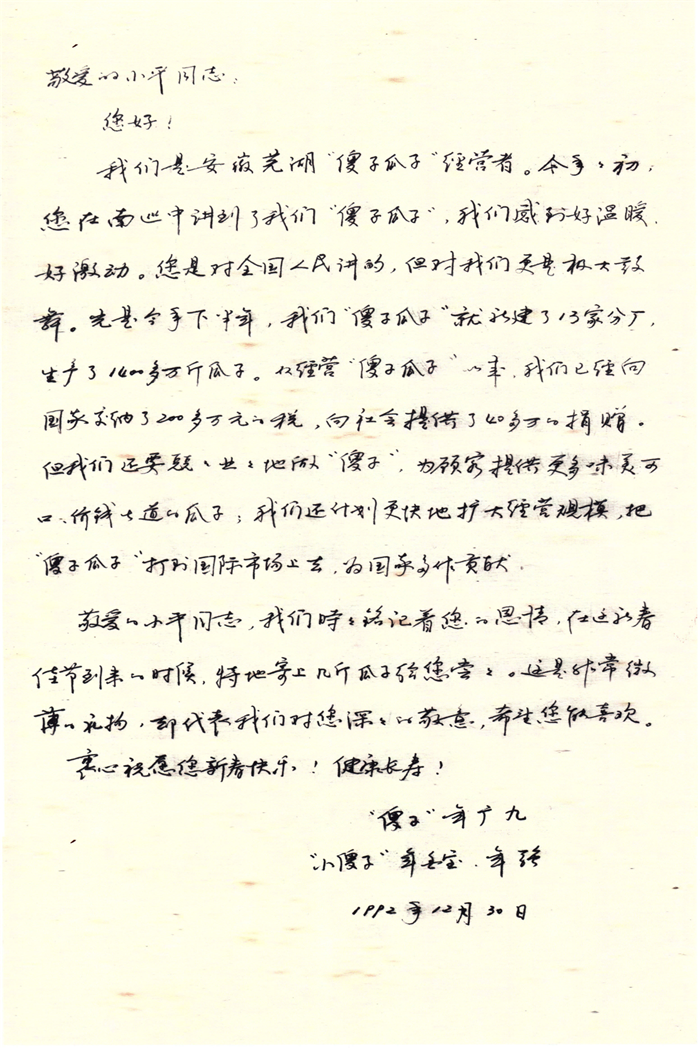 敬爱的小平同志:
您好!
我们是安徽芜湖“傻子瓜子”经营者。今年年初,
您在南巡中讲到了我们“傻子瓜子”,我们感到好温暖,
好激动。您是对全国人民讲的,但对我们更是极大鼓
舞。光是今年下半年,我们“傻子瓜子”就新建了13家分厂,
生产了1400多万斤瓜子。从经营“傻子瓜子”以来,我们已经向
国家交纳了200多万元的税,向社会提供了40多万的捐赠。
但我们还要兢兢业业地做“傻子”,为顾客提供更多味美可
口、价钱公道的瓜子;我们还计划更快地扩大经营规模,把
“傻子瓜子”打到国际市场上去,为国家多作贡献。
敬爱的小平同志,我们时时铭记着您的恩情,在这新春
佳节到来的时候,特地寄上几斤瓜子给您尝尝。这是非常微
薄的礼物,却代表我们对您深深的敬意,希望您能喜欢。
衷心祝愿您新春快乐!健康长寿!
“傻子”年广九
“小傻子”年金宝、年强
1992年12月30日